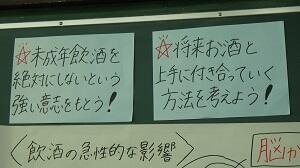 ☆未成年飲酒を
絶対にしないという
強い意志をもとう!
☆将来お酒と
上手に付き合っていく
方法を考えよう!
〈飲酒の急性的な影響〉
脳